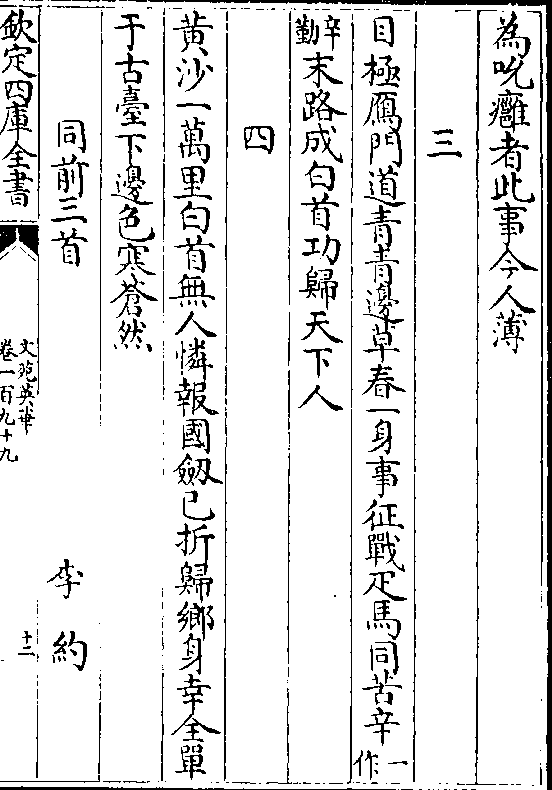 為吮癰者此事今人薄
三
目極鴈門道青青邊草春一身事征戰疋馬同苦辛一作
辛勤末路成白首功歸天下人
四
黃沙一萬里白首無人憐報國劔已折歸鄉身幸全單
于古臺下邊色寒蒼然
同前三首 李約
欽定四庫全書
文苑英華
卷一百九十九
十二